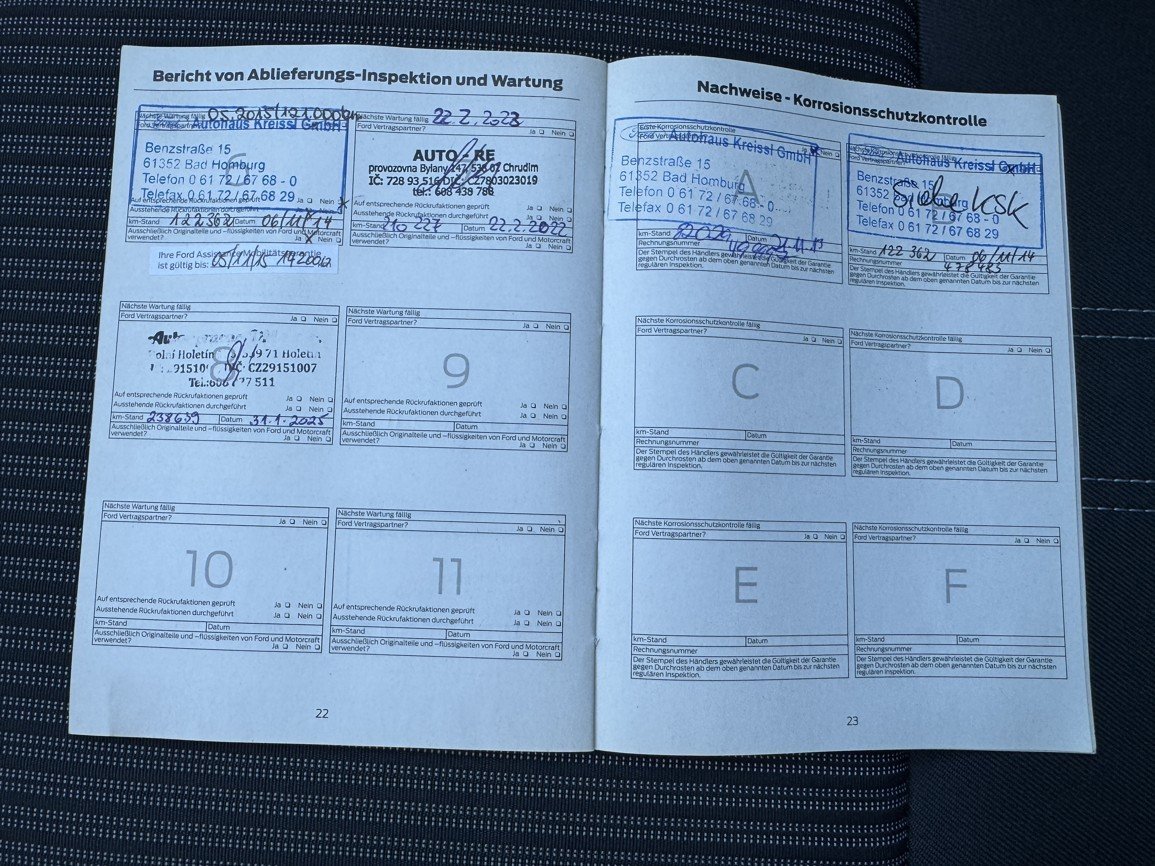 Bericht von Ablieferungs-Inspektion und Wartung
Nächste Wartung fällig 05.2015/121.000km
Ford Vertragspartner?
Autohaus Kreissl GmbH
Benzstraße 15
61352 Bad Homburg
Telefon 0 61 72 / 67 68 - 0
Telefax 0 61 72 / 67 68 29
Ja Nein
6
Ausstehende Rückrufaktionen durchgeführt
km-Stand 122362 Datum 06/11/14
Ausschließlich Originalteile und -flüssigkeiten von Ford und Motorcraft
verwendet? Ja Nein
Ihre Ford Assistance Mobilitätsgarantie
ist gültig bis: 05/11/15 142000km
Nächste Wartung fällig 22.2.2023
Ford Vertragspartner? Ja Nein
AUTO - RE
provozovna Bylany 147, 538 02 Chrudim
IČ: 728 93 516 DIČ: CZ7803023019
tel.: 608 438 786
Auf entsprechende Rückrufaktionen geprüft
Ausstehende Rückrufaktionen durchgeführt
km-Stand 210 227 Datum 22.2.2022
Ausschließlich Originalteile und -flüssigkeiten von Ford und Motorcraft
verwendet? Ja Nein
Nächste Wartung fällig
Ford Vertragspartner? Ja Nein
8
Holetín 971 Holetín
CZ29151007
Auf entsprechende Rückrufaktionen geprüft Ja Nein
Ausstehende Rückrufaktionen durchgeführt Ja Nein
km-Stand 238639 Datum 31.1.2025
Ausschließlich Originalteile und -flüssigkeiten von Ford und Motorcraft
verwendet? Ja Nein
Nächste Wartung fällig
Ford Vertragspartner? Ja Nein
9
Auf entsprechende Rückrufaktionen geprüft Ja Nein
Ausstehende Rückrufaktionen durchgeführt Ja Nein
km-Stand Datum
Ausschließlich Originalteile und -flüssigkeiten von Ford und Motorcraft
verwendet? Ja Nein
Nächste Wartung fällig
Ford Vertragspartner? Ja Nein
10
Auf entsprechende Rückrufaktionen geprüft Ja Nein
Ausstehende Rückrufaktionen durchgeführt Ja Nein
km-Stand Datum
Ausschließlich Originalteile und -flüssigkeiten von Ford und Motorcraft
verwendet? Ja Nein
Nächste Wartung fällig
Ford Vertragspartner? Ja Nein
11
Auf entsprechende Rückrufaktionen geprüft Ja Nein
Ausstehende Rückrufaktionen durchgeführt Ja Nein
km-Stand Datum
Ausschließlich Originalteile und -flüssigkeiten von Ford und Motorcraft
verwendet? Ja Nein
22
Nachweise - Korrosionsschutzkontrolle
Erste Korrosionsschutzkontrolle
Autohaus Kreissl GmbH
Benzstraße 15
61352 Bad Homburg
Telefon 0 61 72 / 67 68 - 0
Telefax 0 61 72 / 67 68 29
A
km-Stand Datum
Rechnungsnummer
Der Stempel des Händlers gewährleistet die Gültigkeit der Garantie
gegen Durchrosten ab dem oben genannten Datum bis zur nächsten
regulären Inspektion.
Autohaus Kreissl GmbH
Benzstraße 15
61352 Bad Homburg
Telefon 0 61 72 / 67 68 - 0
Telefax 0 61 72 / 67 68 29
siehe KSK
km-Stand 122 362 Datum 06/11/14
Rechnungsnummer 478485
Der Stempel des Händlers gewährleistet die Gültigkeit der Garantie
gegen Durchrosten ab dem oben genannten Datum bis zur nächsten
regulären Inspektion.
Nächste Korrosionsschutzkontrolle fällig
Ford Vertragspartner? Ja Nein
C
km-Stand Datum
Rechnungsnummer
Der Stempel des Händlers gewährleistet die Gültigkeit der Garantie
gegen Durchrosten ab dem oben genannten Datum bis zur nächsten
regulären Inspektion.
Nächste Korrosionsschutzkontrolle fällig
Ford Vertragspartner? Ja Nein
D
km-Stand Datum
Rechnungsnummer
Der Stempel des Händlers gewährleistet die Gültigkeit der Garantie
gegen Durchrosten ab dem oben genannten Datum bis zur nächsten
regulären Inspektion.
Nächste Korrosionsschutzkontrolle fällig
Ford Vertragspartner? Ja Nein
E
km-Stand Datum
Rechnungsnummer
Der Stempel des Händlers gewährleistet die Gültigkeit der Garantie
gegen Durchrosten ab dem oben genannten Datum bis zur nächsten
regulären Inspektion.
Nächste Korrosionsschutzkontrolle fällig
Ford Vertragspartner? Ja Nein
F
km-Stand Datum
Rechnungsnummer
Der Stempel des Händlers gewährleistet die Gültigkeit der Garantie
gegen Durchrosten ab dem oben genannten Datum bis zur nächsten
regulären Inspektion.
23